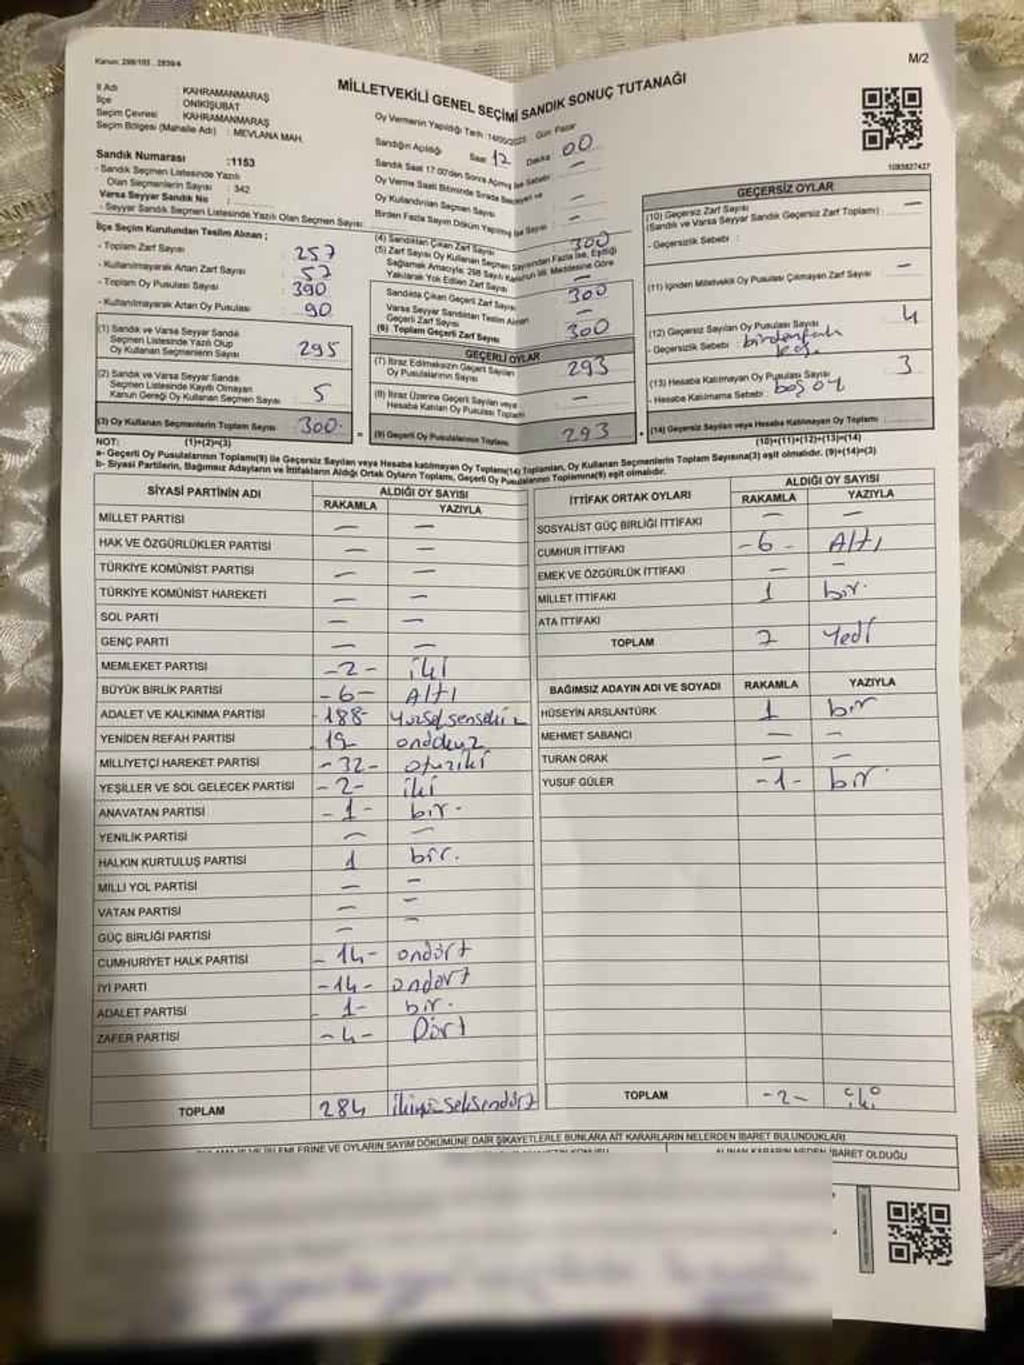 M/2
MİLLETVEKİLİ GENEL SEÇİMİ SANDIK SONUÇ TUTANAĞI
İl Adı : KAHRAMANMARAŞ
İlçe : ONİKİŞUBAT
Seçim Çevresi : KAHRAMANMARAŞ
Seçim Bölgesi (Mahalle Adı) : MEVLANA MAH.
Sandık Numarası :1153
- Sandık Seçmen Listesinde Yazılı
Olan Seçmenlerin Sayısı : 342
Varsa Seyyar Sandık No :
- Seyyar Sandık Seçmen Listesinde Yazılı Olan Seçmen Sayısı :
Oy Vermenin Yapıldığı Tarih :14/05/2023 Gün Pazar
Sandığın Açıldığı Saat 12 Dakika 00
Sandık Saat 17.00'den Sonra Açılmış İse Sebebi : —
Oy Kullandırılan Seçmen Sayısı —
Birden Fazla Sayım Döküm Yapılmış İse Sayısı : —
İlçe Seçim Kurulundan Teslim Alınan ;
- Toplam Zarf Sayısı : 257
- Kullanılmayarak Artan Zarf Sayısı : 57
- Toplam Oy Pusulası Sayısı : 390
- Kullanılmayarak Artan Oy Pusulası : 90
(1) Sandık ve Varsa Seyyar Sandık
Seçmen Listesinde Yazılı Olup
Oy Kullanan Seçmenlerin Sayısı : 295
(2) Sandık ve Varsa Seyyar Sandık
Seçmen Listesinde Kayıtlı Olmayan
Kanun Gereği Oy Kullanan Seçmen Sayısı : 5
(3) Oy Kullanan Seçmenlerin Toplam Sayısı 300
(1)+(2)=(3)
(4) Sandıktan Çıkan Zarf Sayısı 300
(5) Zarf Sayısı Oy Kullanan Seçmen Sayısından Fazla İse, Eşitliği
Sağlamak Amacıyla; 298 Sayılı Kanunun 98. Maddesine Göre
Yakılarak Yok Edilen Zarf Sayısı : —
Sandıkta Çıkan Geçerli Zarf Sayısı 300
Varsa Seyyar Sandıktan Teslim Alınan
Geçerli Zarf Sayısı : —
(6) Toplam Geçerli Zarf Sayısı 300
GEÇERLİ OYLAR
(7) İtiraz Edilmeksizin Geçerli Sayılan
Oy Pusulalarının Sayısı : 293
(8) İtiraz Üzerine Geçerli Sayılan veya
Hesaba Katılan Oy Pusulası Toplamı —
(9) Geçerli Oy Pusulalarının Toplamı 293
GEÇERSİZ OYLAR
1093827427
(10) Geçersiz Zarf Sayısı —
(Sandık ve Varsa Seyyar Sandık Geçersiz Zarf Toplamı) :
- Geçersizlik Sebebi :
(11) İçinden Milletvekili Oy Pusulası Çıkmayan Zarf Sayısı —
(12) Geçersiz Sayılan Oy Pusulası Sayısı 4
- Geçersizlik Sebebi : birden fazla
(13) Hesaba Katılmayan Oy Pusulası Sayısı : 3
- Hesaba Katılmama Sebebi : boş oy
(14) Geçersiz Sayılan veya Hesaba Katılmayan Oy Toplamı :
(10)+(11)+(12)+(13)=(14)
NOT:
a- Geçerli Oy Pusulalarının Toplamı(9) ile Geçersiz Sayılan veya Hesaba katılmayan Oy Toplamı(14) Toplamları, Oy Kullanan Seçmenlerin Toplam Sayısına(3) eşit olmalıdır. (9)+(14)=(3)
b- Siyasi Partilerin, Bağımsız Adayların ve İttifakların Aldığı Ortak Oyların Toplamı, Geçerli Oy Pusulalarının Toplamına(9) eşit olmalıdır.
SİYASİ PARTİNİN ADI ALDIĞI OY SAYISI
RAKAMLA YAZIYLA
MİLLET PARTİSİ — —
HAK VE ÖZGÜRLÜKLER PARTİSİ — —
TÜRKİYE KOMÜNİST PARTİSİ — —
TÜRKİYE KOMÜNİST HAREKETİ — —
SOL PARTİ — —
GENÇ PARTİ — —
MEMLEKET PARTİSİ -2- iki
BÜYÜK BİRLİK PARTİSİ -6- Altı
ADALET VE KALKINMA PARTİSİ -188-
YENİDEN REFAH PARTİSİ 19 ondokuz
MİLLİYETÇİ HAREKET PARTİSİ -32- otuziki
YEŞİLLER VE SOL GELECEK PARTİSİ -2- iki
ANAVATAN PARTİSİ -1- bir.
YENİLİK PARTİSİ — —
HALKIN KURTULUŞ PARTİSİ 1 bir.
MİLLİ YOL PARTİSİ — —
VATAN PARTİSİ — —
GÜÇ BİRLİĞİ PARTİSİ — —
CUMHURİYET HALK PARTİSİ -14- ondört
İYİ PARTİ -14- ondört
ADALET PARTİSİ 1- bir.
ZAFER PARTİSİ -4- Dört
TOPLAM 284
İTTİFAK ORTAK OYLARI ALDIĞI OY SAYISI
RAKAMLA YAZIYLA
SOSYALİST GÜÇ BİRLİĞİ İTTİFAKI — —
CUMHUR İTTİFAKI -6- Altı
EMEK VE ÖZGÜRLÜK İTTİFAKI — —
MİLLET İTTİFAKI 1 bir.
ATA İTTİFAKI
TOPLAM 7 Yedi
BAĞIMSIZ ADAYIN ADI VE SOYADI RAKAMLA YAZIYLA
HÜSEYİN ARSLANTÜRK 1 bir
MEHMET SABANCI — —
TURAN ORAK — —
YUSUF GÜLER -1- bir
TOPLAM -2- iki